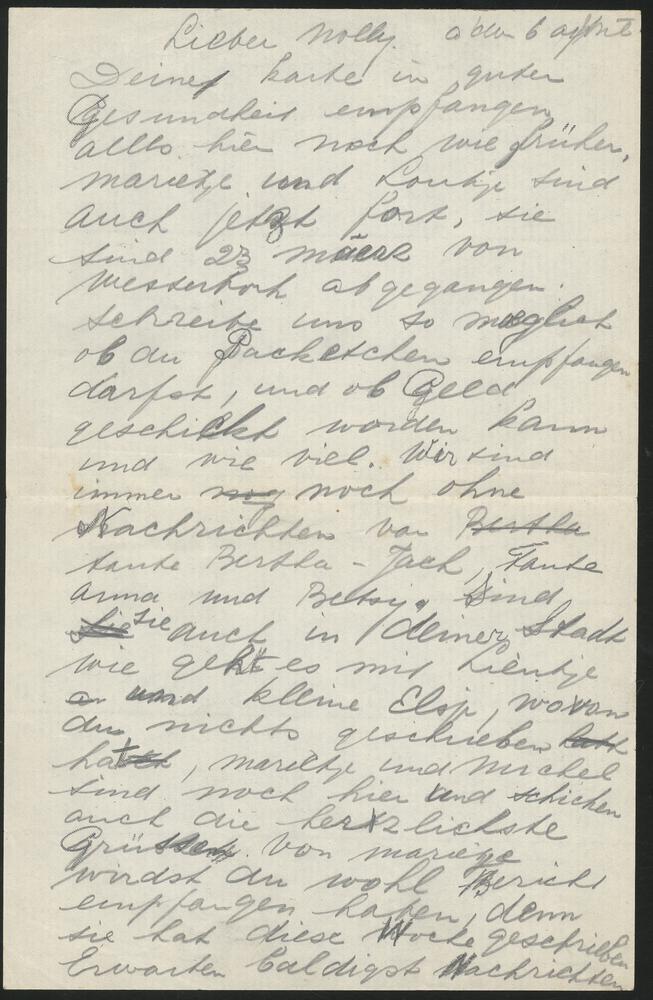 Lieber Nolly. a/den 6
Deine Karte in guter
Gesundheit empfangen
alles hier noch wie früher,
Marietje und Loutje sind
auch jetzt fort, sie
sind 23 märz von
Westerbork abgegangen.
schreibe uns so möglich
ob du Packetchen empfangen
darfst, und ob Geld
geschickt worden kann
und wie viel. Wir sind
immer noch ohne
Nachrichten von
tante Bertha - Jach, Tante
Anna und Betsy. Sind
sie auch in deiner Stadt
wie geht es mit Lientje
und kleine Elsje, wovon
du nichts geschrieben
hast, Marietje und Michel
sind noch hier und schicken
auch die herzlichste
Grüsse. Von Marietje
wirdst du wohl Bericht
empfangen haben, denn
sie hat diese Woche geschrieben
Erwarten baldigst Nachrichten